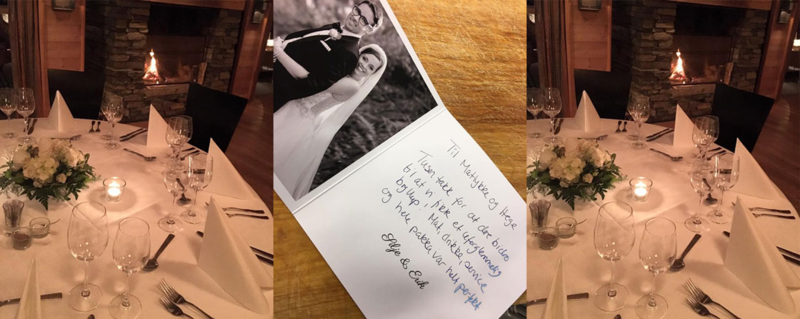 Til Matlykke og Hege
Tusen takk for at dere bidro
til at vi fikk et uforglemmelig
bryllup! Mat, drikke, service
og hele pakken var helt perfekt
Silje & Eirik